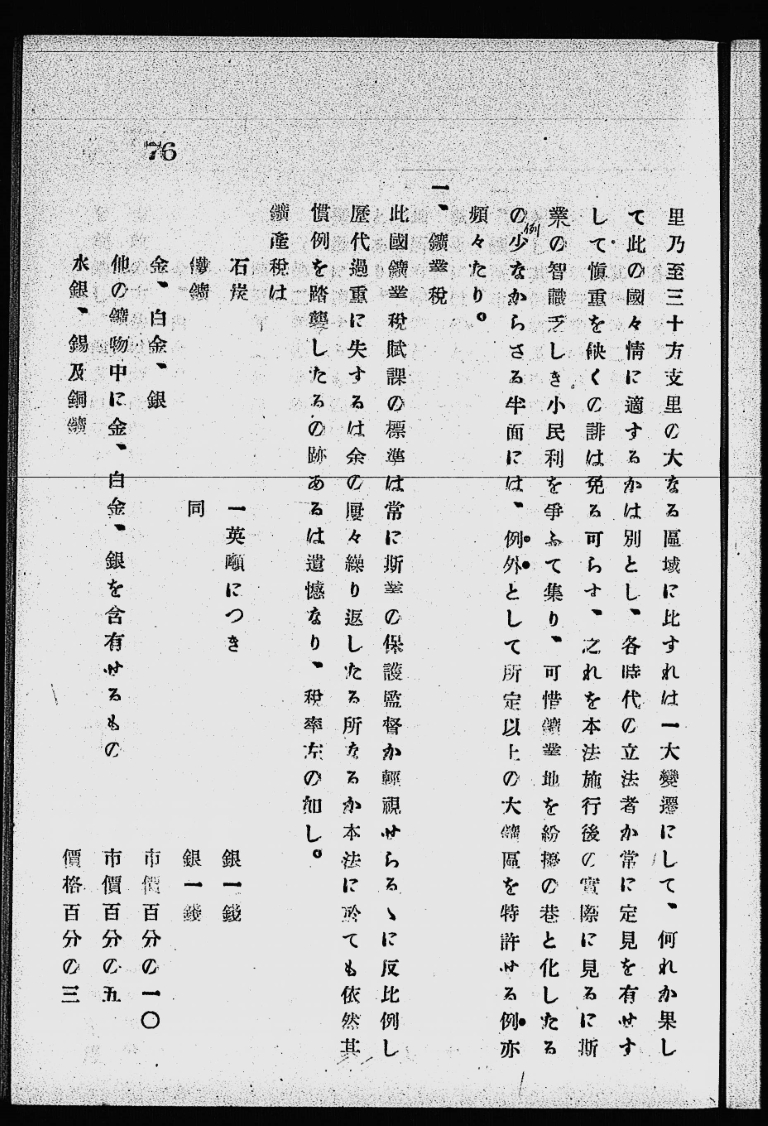 76
里乃至三十方支里の大なる區域に比すれは一大變遷にして、何れか果し
て此の國々情に適するかは別とし、各時代の立法者か常に定見を有せす
して愼重を缺くの誹は免る可らす、之れを本法施行後の實際に見るに斯
業の智識乏しき小民利を爭ふて集り、可惜鑛業地を紛擾の巷と化したる
例
の少なからさる半面には、例外として所定以上の大鑛區を特許せる例亦
頻々たり。
一、鑛業稅
此國鑛業稅賦課の標準は常に斯業の保護監督か輕視せらるゝに反比例し
歷代過重に失するは余の屢々繰り返したる所なるか本法に於ても依然其
慣例を踏襲したるの跡あるは遺憾なり、稅率左の如し。
鑛產稅は
石炭 一英噸につき 銀一錢
鑛 同 銀一錢
金、白金、銀 市價百分の一〇
他の鑛物中に金、白金、銀を含有せるもの 市價百分の五
水銀、錫及銅鑛 價格百分の三